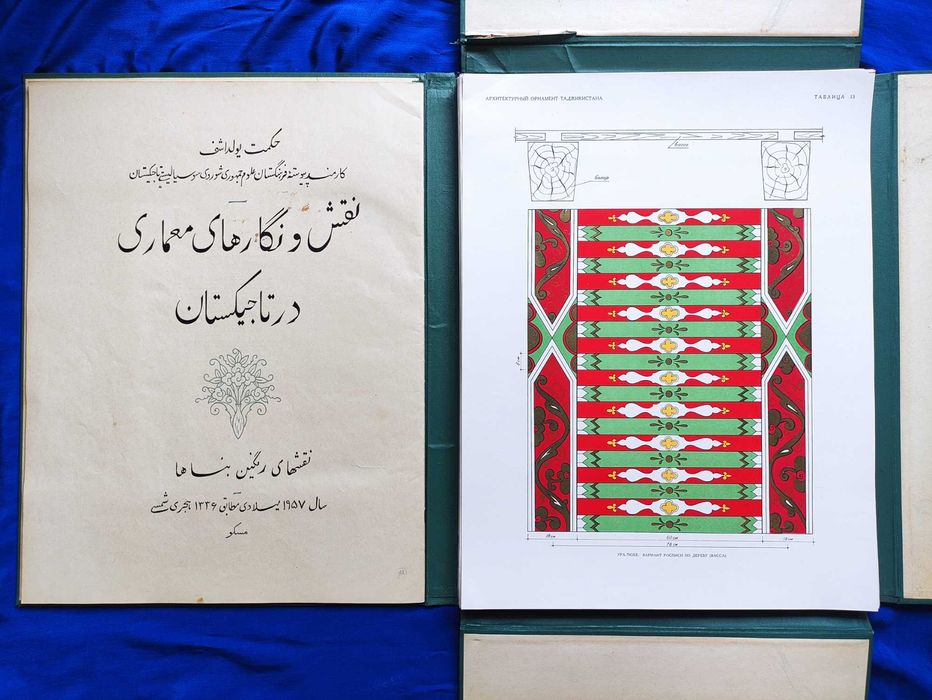 حکمت یولداشف
کارمند پیوسته فرهنگستان علوم جمهوری شوروی سوسیالیستی تاجیکستان
نقش و نگارهای معماری
در تاجیکستان
نقشهای رنگین بناها
سال ۱۹۵۷ میلادی مطابق ۱۳۳۶ هجری شمسی
مسکو
АРХИТЕКТУРНЫЙ ОРНАМЕНТ ТАДЖИКИСТАНА
ТАБЛИЦА 13
Васса
Болор
18 см
60 см
18 см
78 см
УРА-ТЮБЕ. ВАРИАНТ РОСПИСИ ПО ДЕРЕВУ (ВАССА)